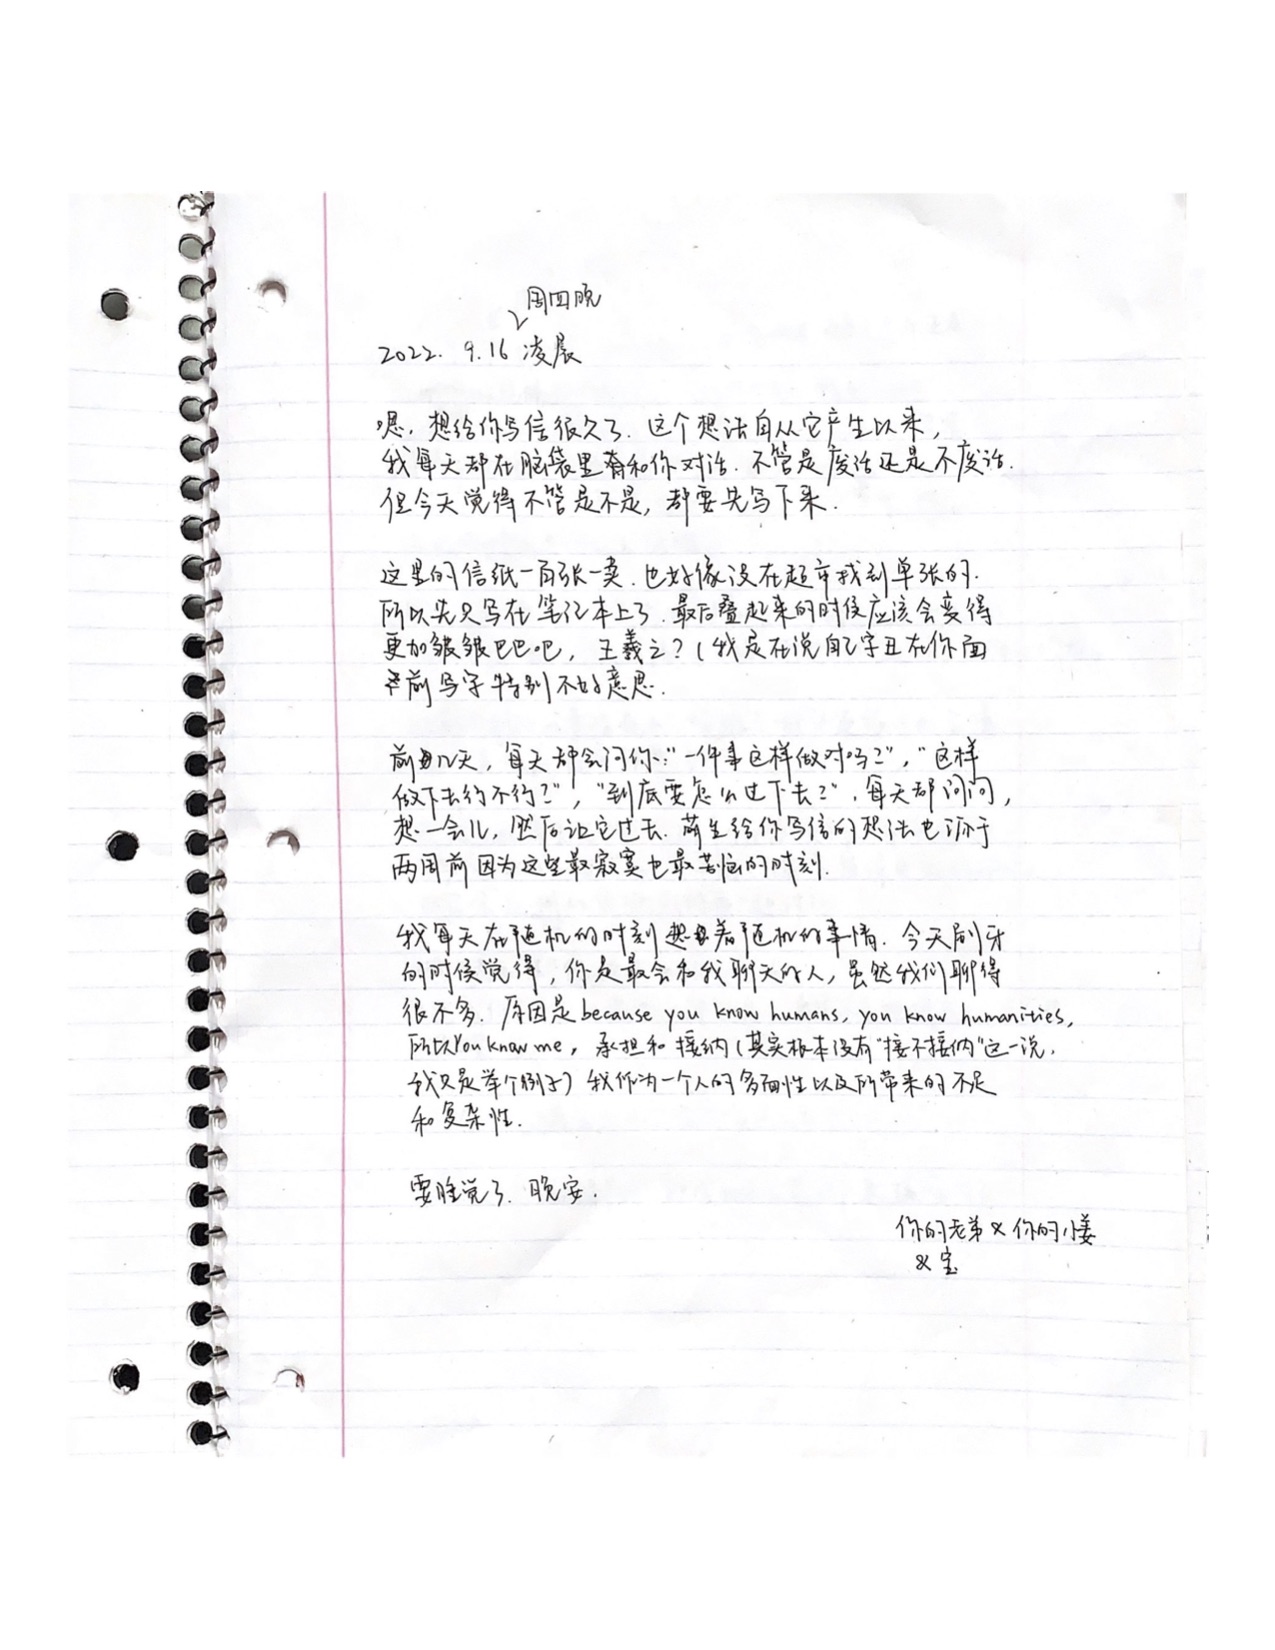 周四晚
2022. 9.16 凌晨
嗯, 想给你写信很久了. 这个想法自从它产生以来,
我每天都在脑袋里和你对话. 不管是废话还是不废话.
但今天觉得不管是不是, 都要先写下来.
这里的信纸一百张一卖. 也好像没在超市找到单张的.
所以先只写在笔记本上了. 最后叠起来的时候应该会变得
更加皱皱巴巴吧, 王羲之? (我是在说自己字丑在你面
前写字特别不好意思.
前几天, 每天都会问你: "一件事这样做对吗?", "这样
做下去行不行?", "到底要怎么过下去?". 每天都问问,
想一会儿, 然后让它过去. 萌生给你写信的想法也源于
两周前因为这些最寂寞也最苦恼的时刻.
我每天在随机的时刻想着随机的事情. 今天刷牙
的时候觉得, 你是最会和我聊天的人, 虽然我们聊得
很不多. 原因是because you know humans, you know humanities,
所以You know me, 承担和接纳 (其实根本没有"接不接纳"这一说,
我只是举个例子) 我作为一个人的多面性以及所带来的不足
和复杂性.
要睡觉了. 晚安.
你的老弟 & 你的小姜
& 宝